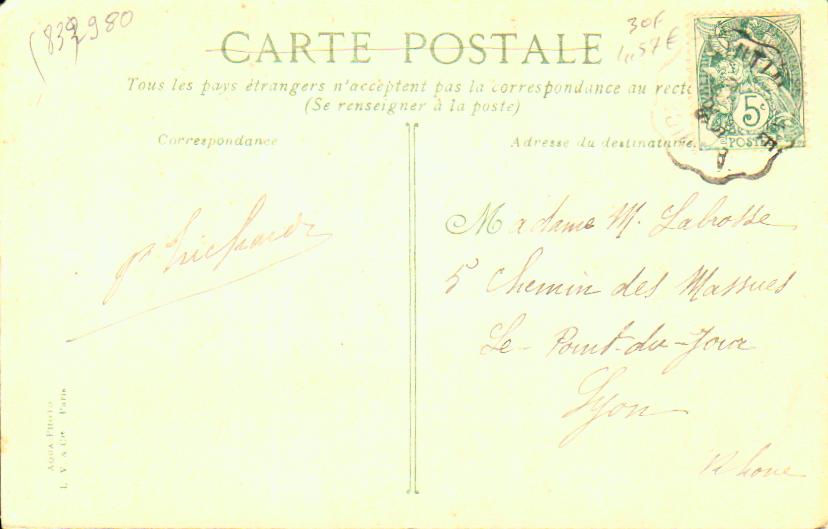 (839980
30F
CARTE POSTALE
4,57€
Tous les pays étrangers n'acceptent pas la correspondance au recto
(Se renseigner à la poste)
5c
POSTES
Correspondance
Adresse du destinataire
Madame M. Labrosse
5 Chemin des Massues
Le-Point-du-Jour
Lyon
Rhone
AQUA-PHOTO
L. V. & Cie Paris